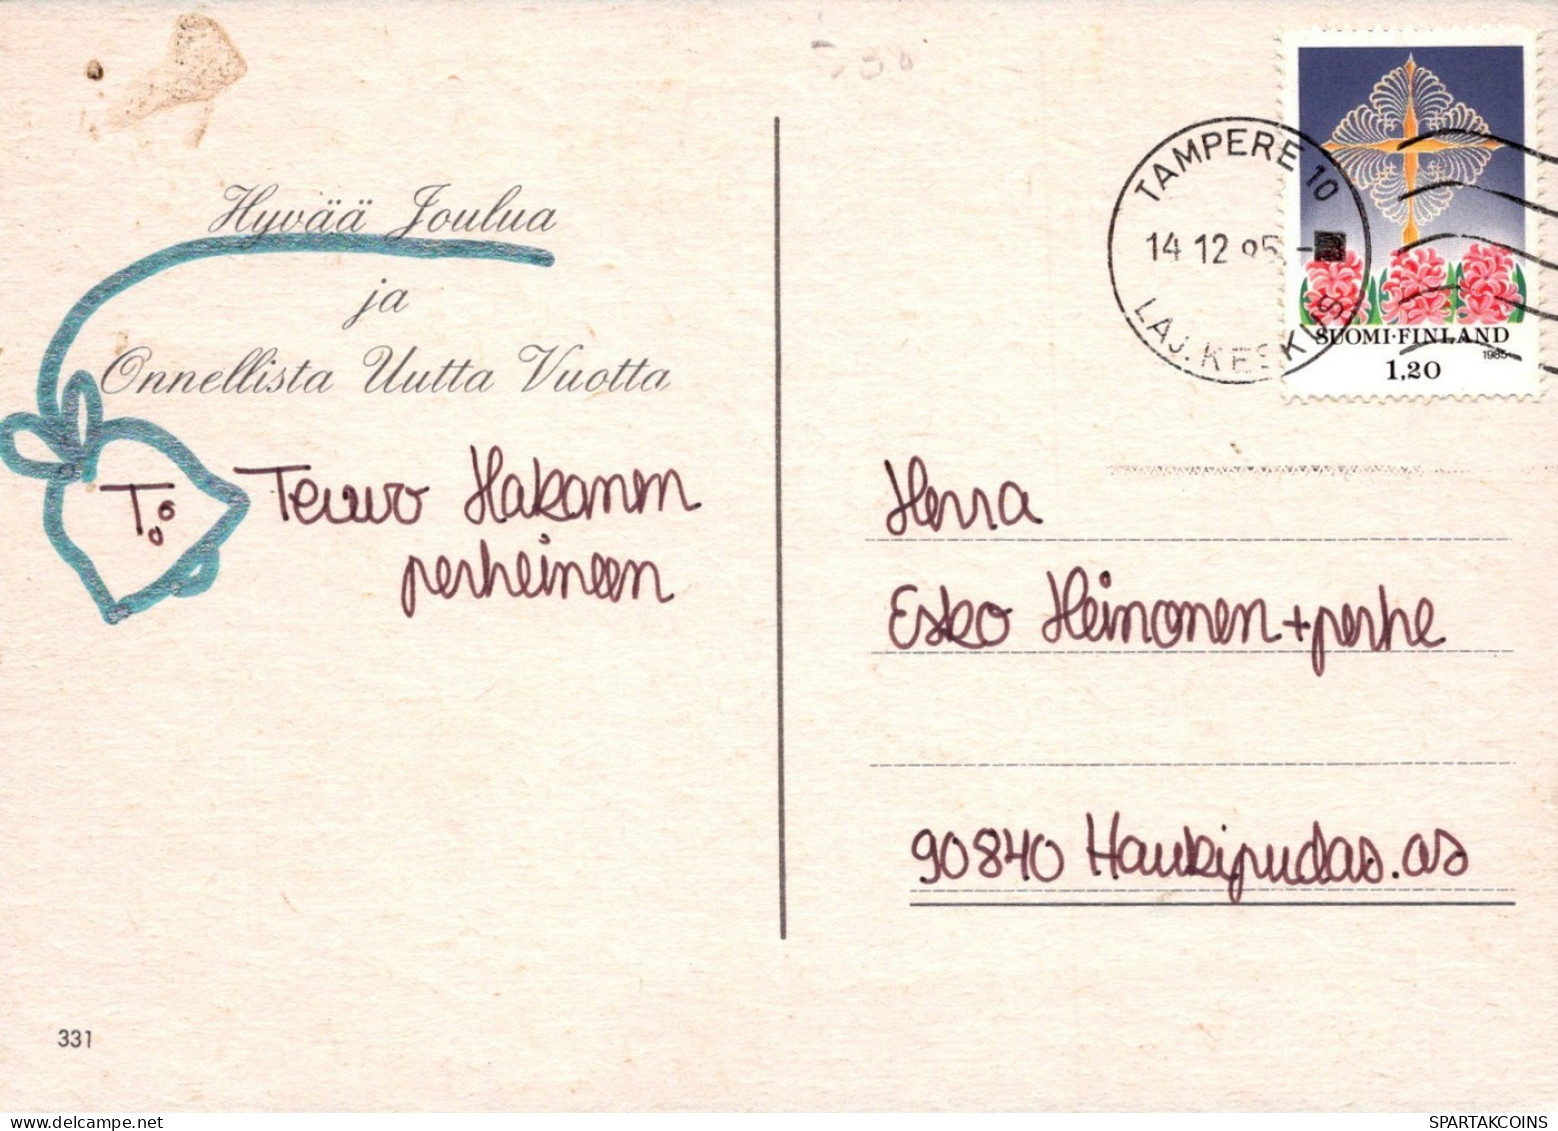 Hyvää Joulua
ja
Onnellista Uutta Vuotta
T:ö Teuvo Hakanen
perheineen
331
TAMPERE 10
14 12 85
LAJ. KESKUS
SUOMI·FINLAND
1985
1,20
Herra
Esko Heinonen + perhe
90840 Haukipudas.as
SPARTAKCOINS